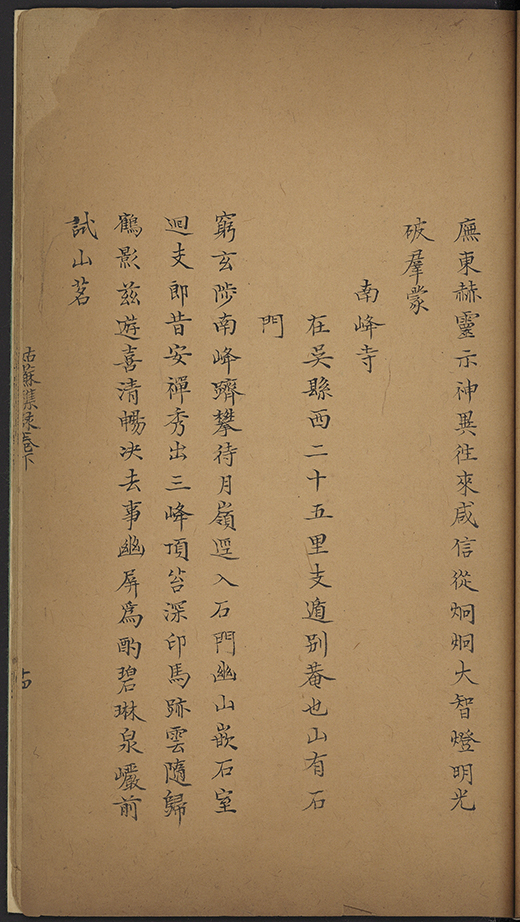 廡東赫靈示神異徃來咸信從炯炯大智燈明光
破羣蒙
南峰寺
在吳縣西二十五里支遁别菴也山有石
門
窮玄陟南峰躋攀待月嶺逕入石門幽山嵌石室
迴支郎昔安禪秀出三峰頂苔深印馬跡雲隨歸
鶴影兹遊喜清暢决去事幽屏爲酌碧琳泉巗前
試山茗
姑蘇集